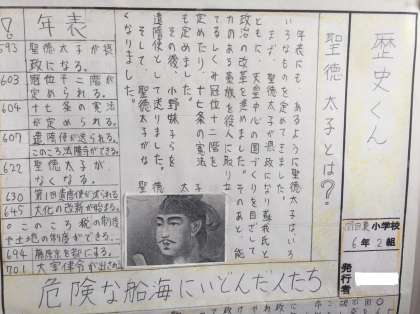 歴史くん
小学校
6年2組
発行者
聖徳太子とは?
年表にも、あるように聖徳太子はいろ
いろなものを定めてきました。
まず、聖徳太子が摂政になり蘇我氏と
ともに、天皇中心の国づくりを目ざして
政治の改革を進めました。そのあと、能
力のある豪族を役人に取り立
てるしくみ冠位十二階を
定めたり、十七条の憲法
も定めました。
その後、小野妹子らを
遣隋使として送りました。
そして、聖徳太子がな
くなりました。
聖徳太子
年表
593 聖徳太子が摂
政になる。
603 冠位十二階が
定められる。
604 十七条の憲法
が定められる。
607 遣隋使が送られる
このころ法隆寺ができる。
622 聖徳太子が
なくなる。
630 第1回遣唐使が送られる
645 大化の改新が始まる。
このころ税の制度
や土地の制度ができる。
694 藤原京を都にする。
701 大宝律令が出され
危険な船海にいどんだ人たち